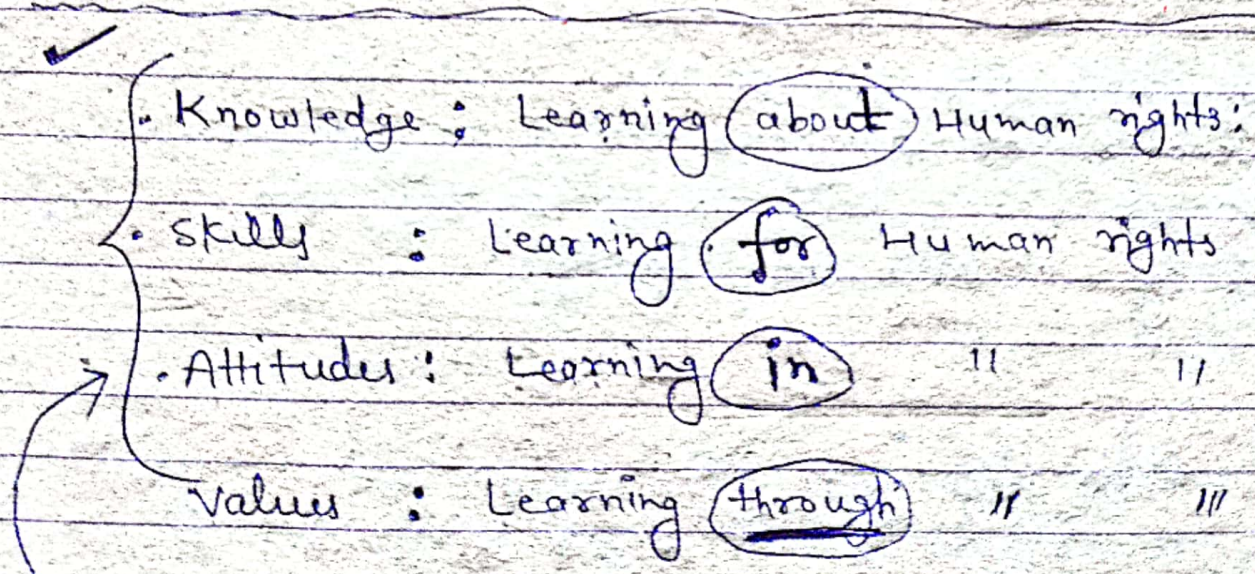 . Knowledge : Learning about Human rights:
. Skills : Learning for Human rights
. Attitudes : Learning in " "
Values : Learning through " "